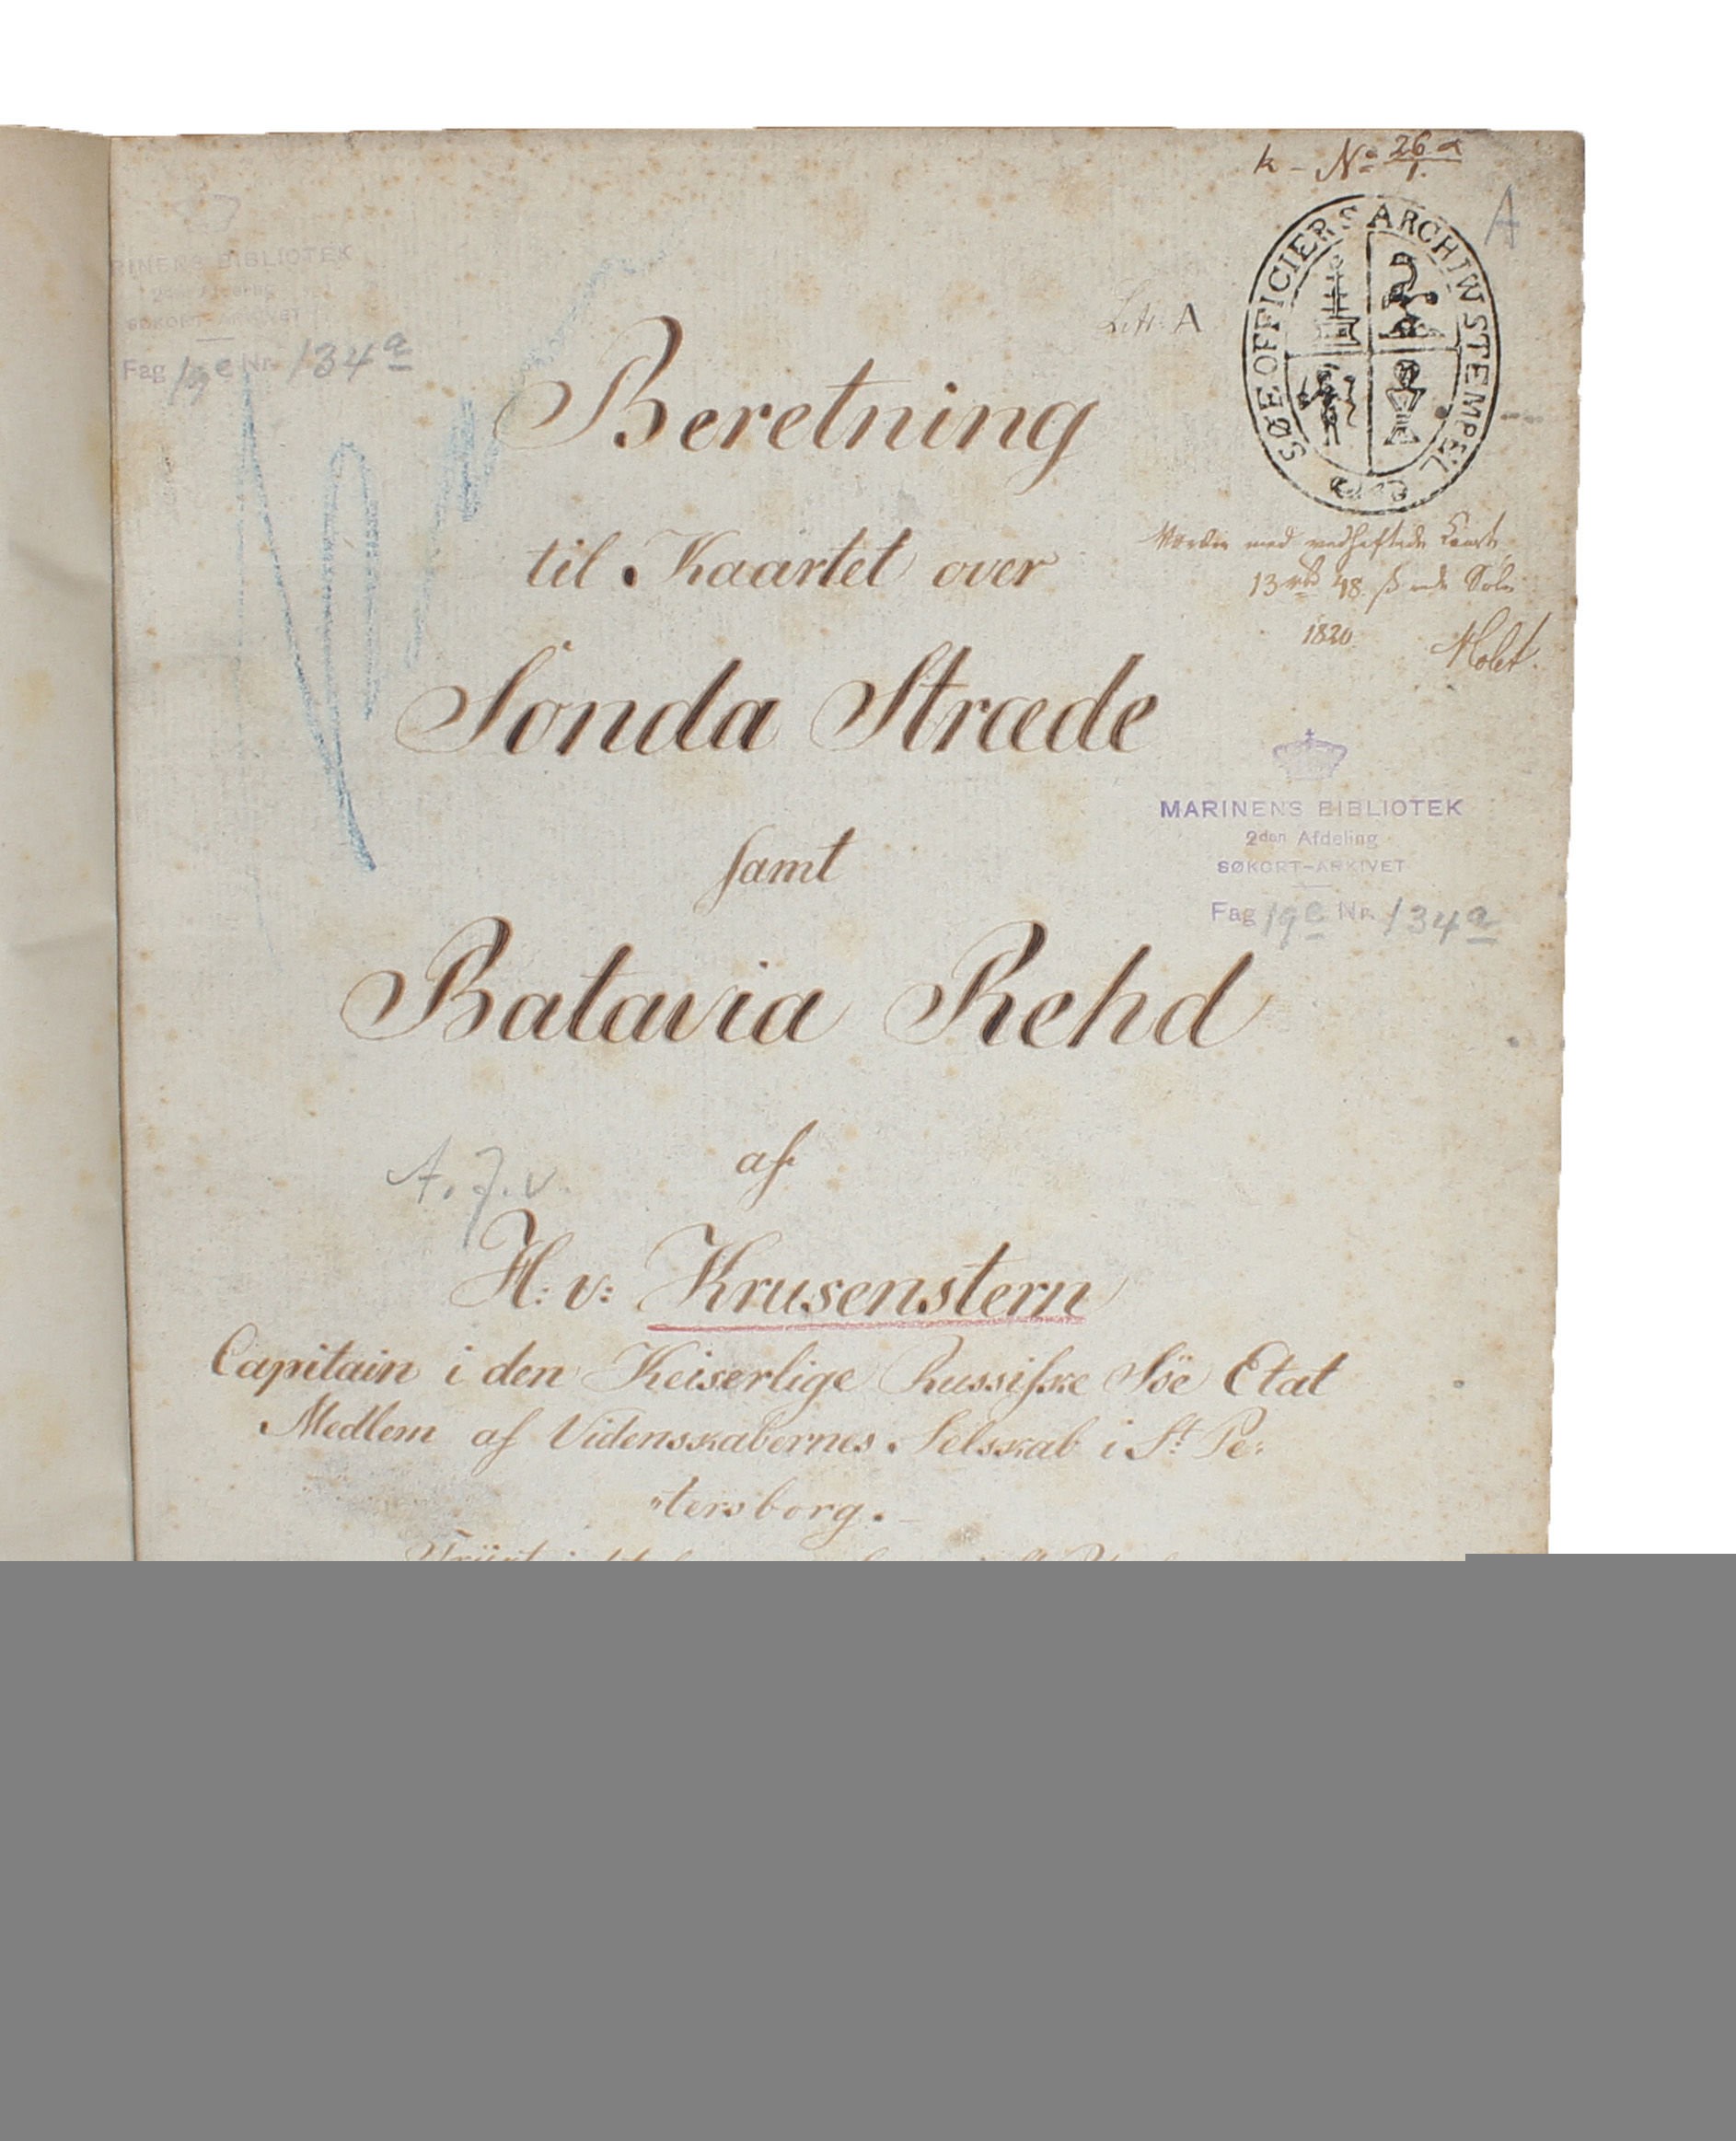 k - No 26 a
1.
A
SØEOFFICIERS ARCHIW STEMPEL
MARINENS BIBLIOTEK
2den Afdeling
SØKORT-ARKIVET
Fag 19e Nr. 134a
Litr. A
Beretning
til Kaartet over
med vedheftede
13 rbd 48 ß
1820. Holst.
Sonda Stræde
samt
MARINENS BIBLIOTEK
2den Afdeling
SØKORT-ARKIVET
Fag 19e Nr. 134a
Batavia Rehd
af
A. J. v.
H: v: Krusenstern
Capitain i den Keiserlige Russiske Söe Etat
Medlem af Videnskabernes Selskab i St. Pe:
"tersborg.